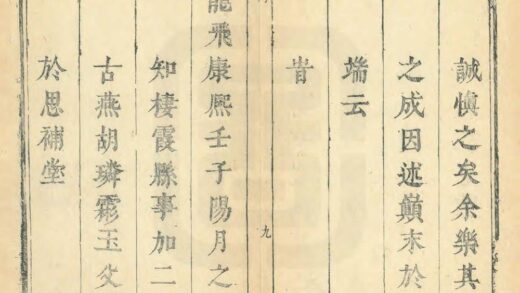 誠慎之矣余樂其
之成因述顛末於
端云
旹
龍飛康熙壬子陽月之
知棲霞縣事加二
古燕胡璘霦玉父
於思補堂
九